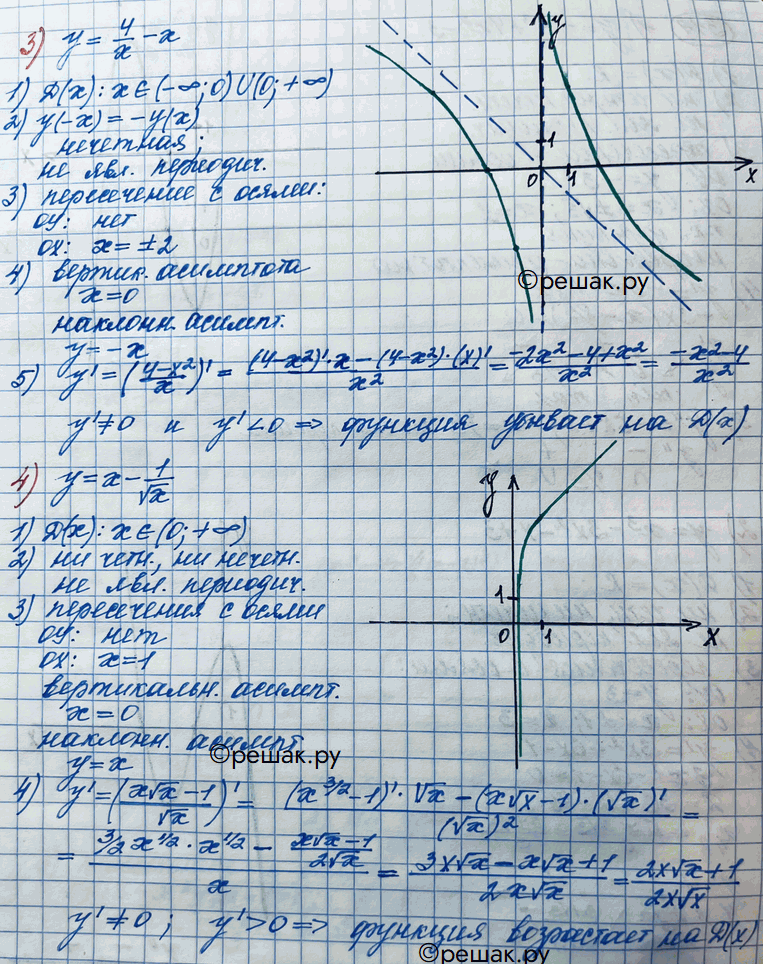 3) y = 4/x - x
1) D(x): x ∈ (-∞; 0) ∪ (0; +∞)
2) y(-x) = -y(x)
нечетная;
не явл. периодич.
3) пересечение с осями:
оу: нет
ох: x = ±2
4) вертик. асимптота
x = 0
наклонн. асимпт.
y = -x
5) y' = ((4-x²)/x)' = ((4-x²)'·x - (4-x²)·(x)')/x² = (-2x² - 4 + x²)/x² = (-x² - 4)/x²
y' ≠ 0 и y' < 0 ⇒ функция убывает на D(x)
y
1
0
1
x
©решак.ру
4) y = x - 1/√x
1) D(x): x ∈ (0; +∞)
2) ни четн., ни нечетн.
не явл. периодич.
3) пересечения с осями
оу: нет
ох: x = 1
вертикальн. асимпт.
x = 0
наклонн. асимпт
y = x
y
1
0
1
x
©решак.ру
4) y' = ((x√x - 1)/√x)' = ((x^(3/2) - 1)'·√x - (x√x - 1)·(√x)')/(√x)² =
= (3/2 x^(1/2)·x^(1/2) - (x√x - 1)/(2√x))/x = (3x√x - x√x + 1)/(2x√x) = (2x√x + 1)/(2x√x)
y' ≠ 0; y' > 0 ⇒ функция возрастает на D(x)
©решак.ру